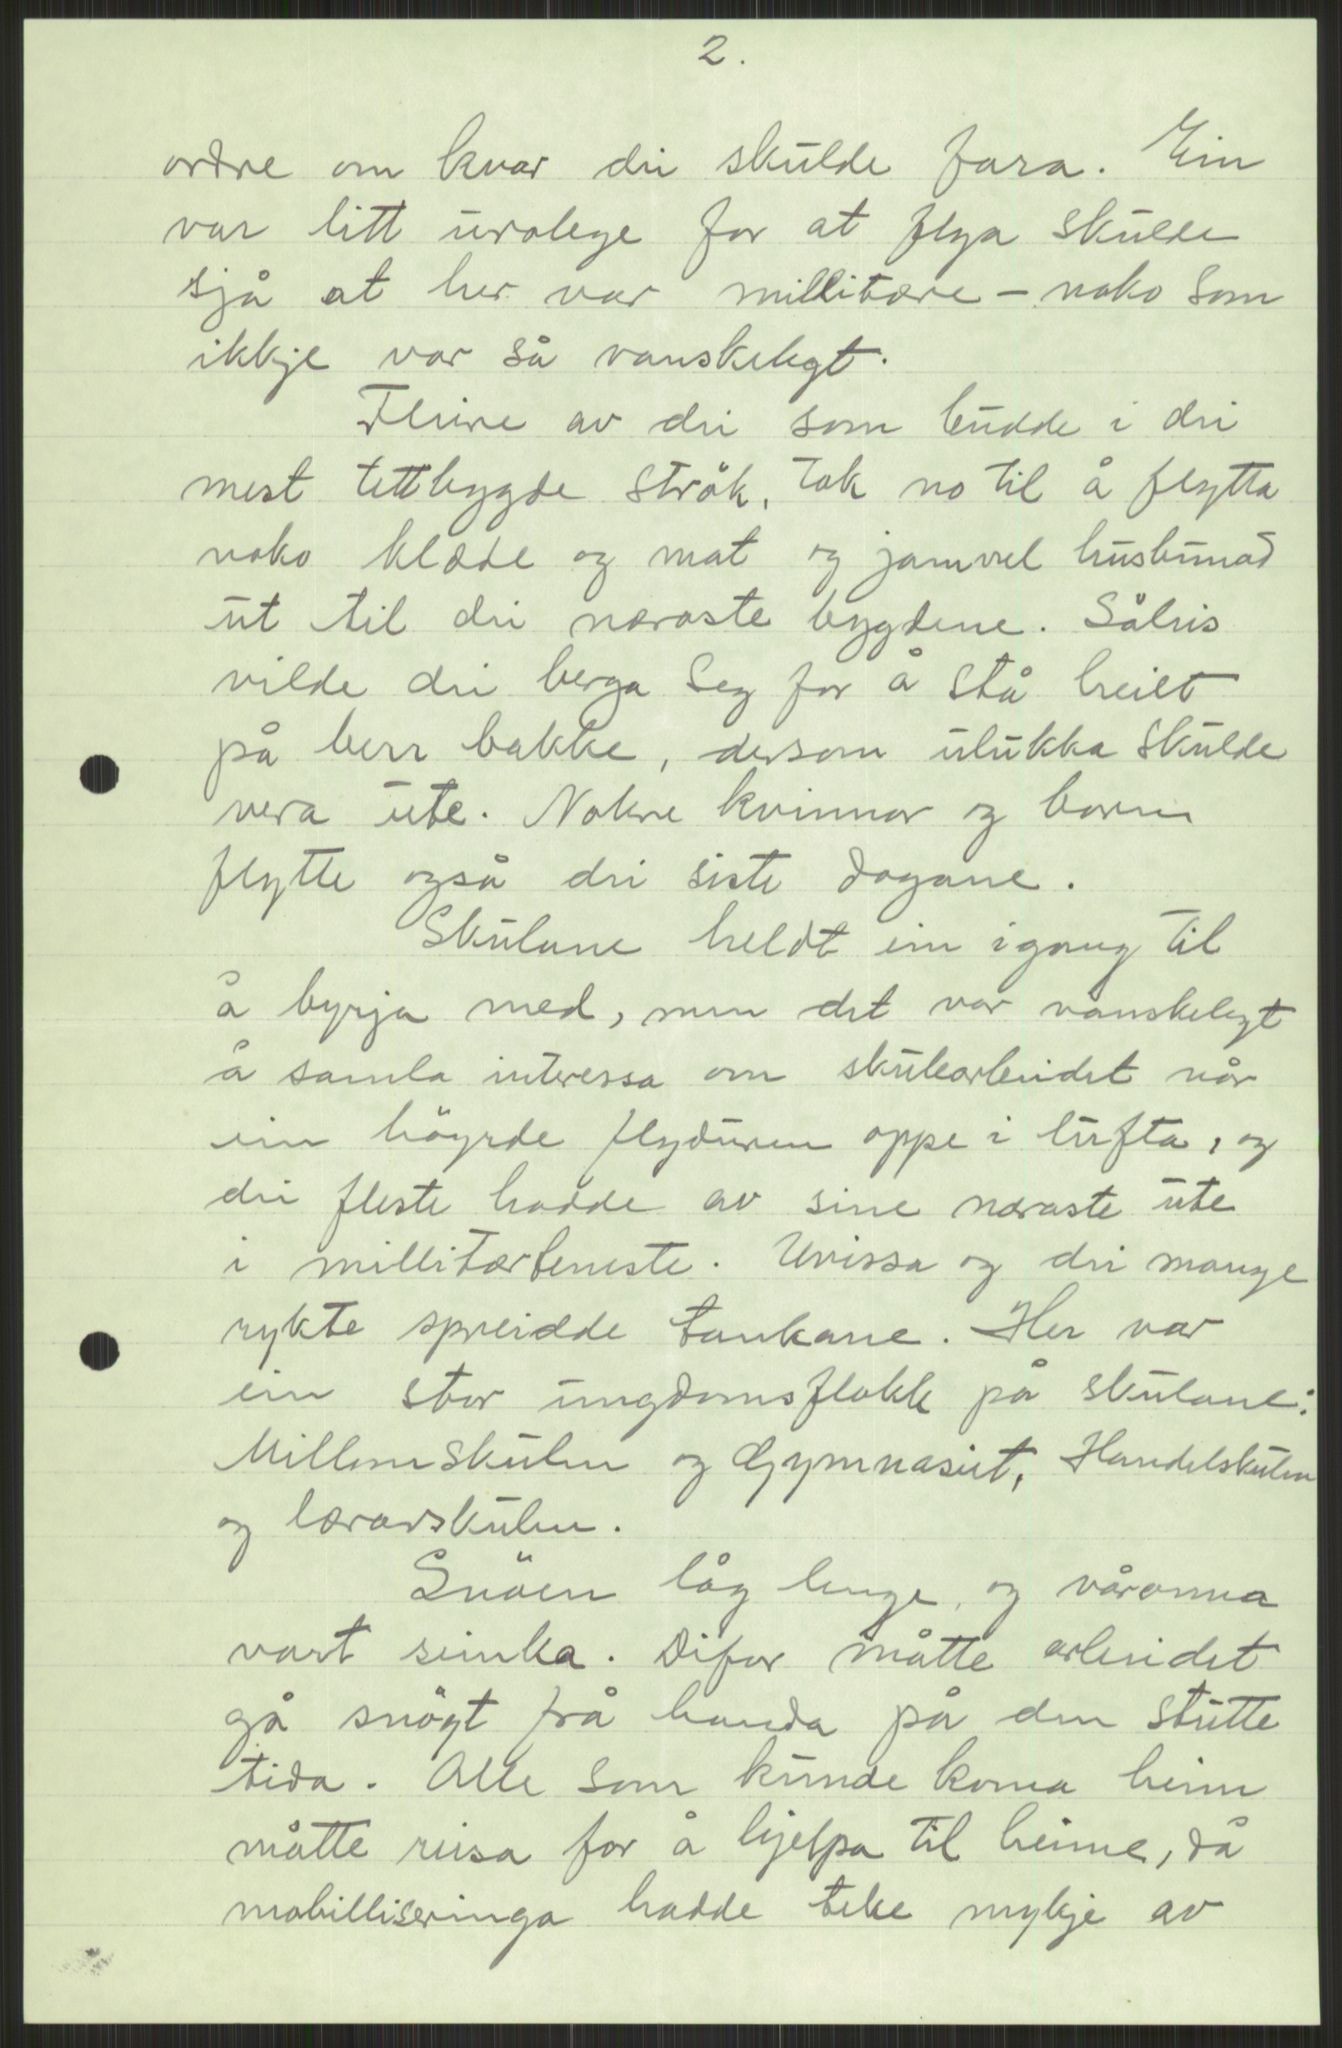 2.
ordre om kvar dei skulde fara. Ein
var litt urolege for at flya skulde
sjå at her var millitære - noko som
ikkje var så vanskelegt.
Fleire av dei som budde i dei
mest tettbygde strök, tok no til å flytta
noko klæde og mat og jamvel husbunad
ut til dei næraste bygdene. Såleis
vilde dei berga seg for å stå heilt
på berr bakke, dersom ulukka skulde
vera ute. Nokre kvinnor og born
flytte også dei siste dagane.
Skulane heldt ein igang til
å byrja med, men det var vanskelegt
å samla interessa om skulearbeidet når
ein höyrde flyduren oppe i lufta, og
dei fleste hadde av sine næraste ute
i millitærteneste. Uvissa og dei mange
rykte spreidde tankane. Her var
ein stor ungdomsflokk på skulane:
Millomskulen og Gymnasiet, Handelskulen
og lærarskulen.
Snöen låg lenge, og våronna
vart seinka. Difor måtte arbeidet
gå snögt frå handa på den stutte
tida. Alle som kunde koma heim
måtte reisa for å hjelpa til heime, då
mobilliseringa hadde teke mykje av